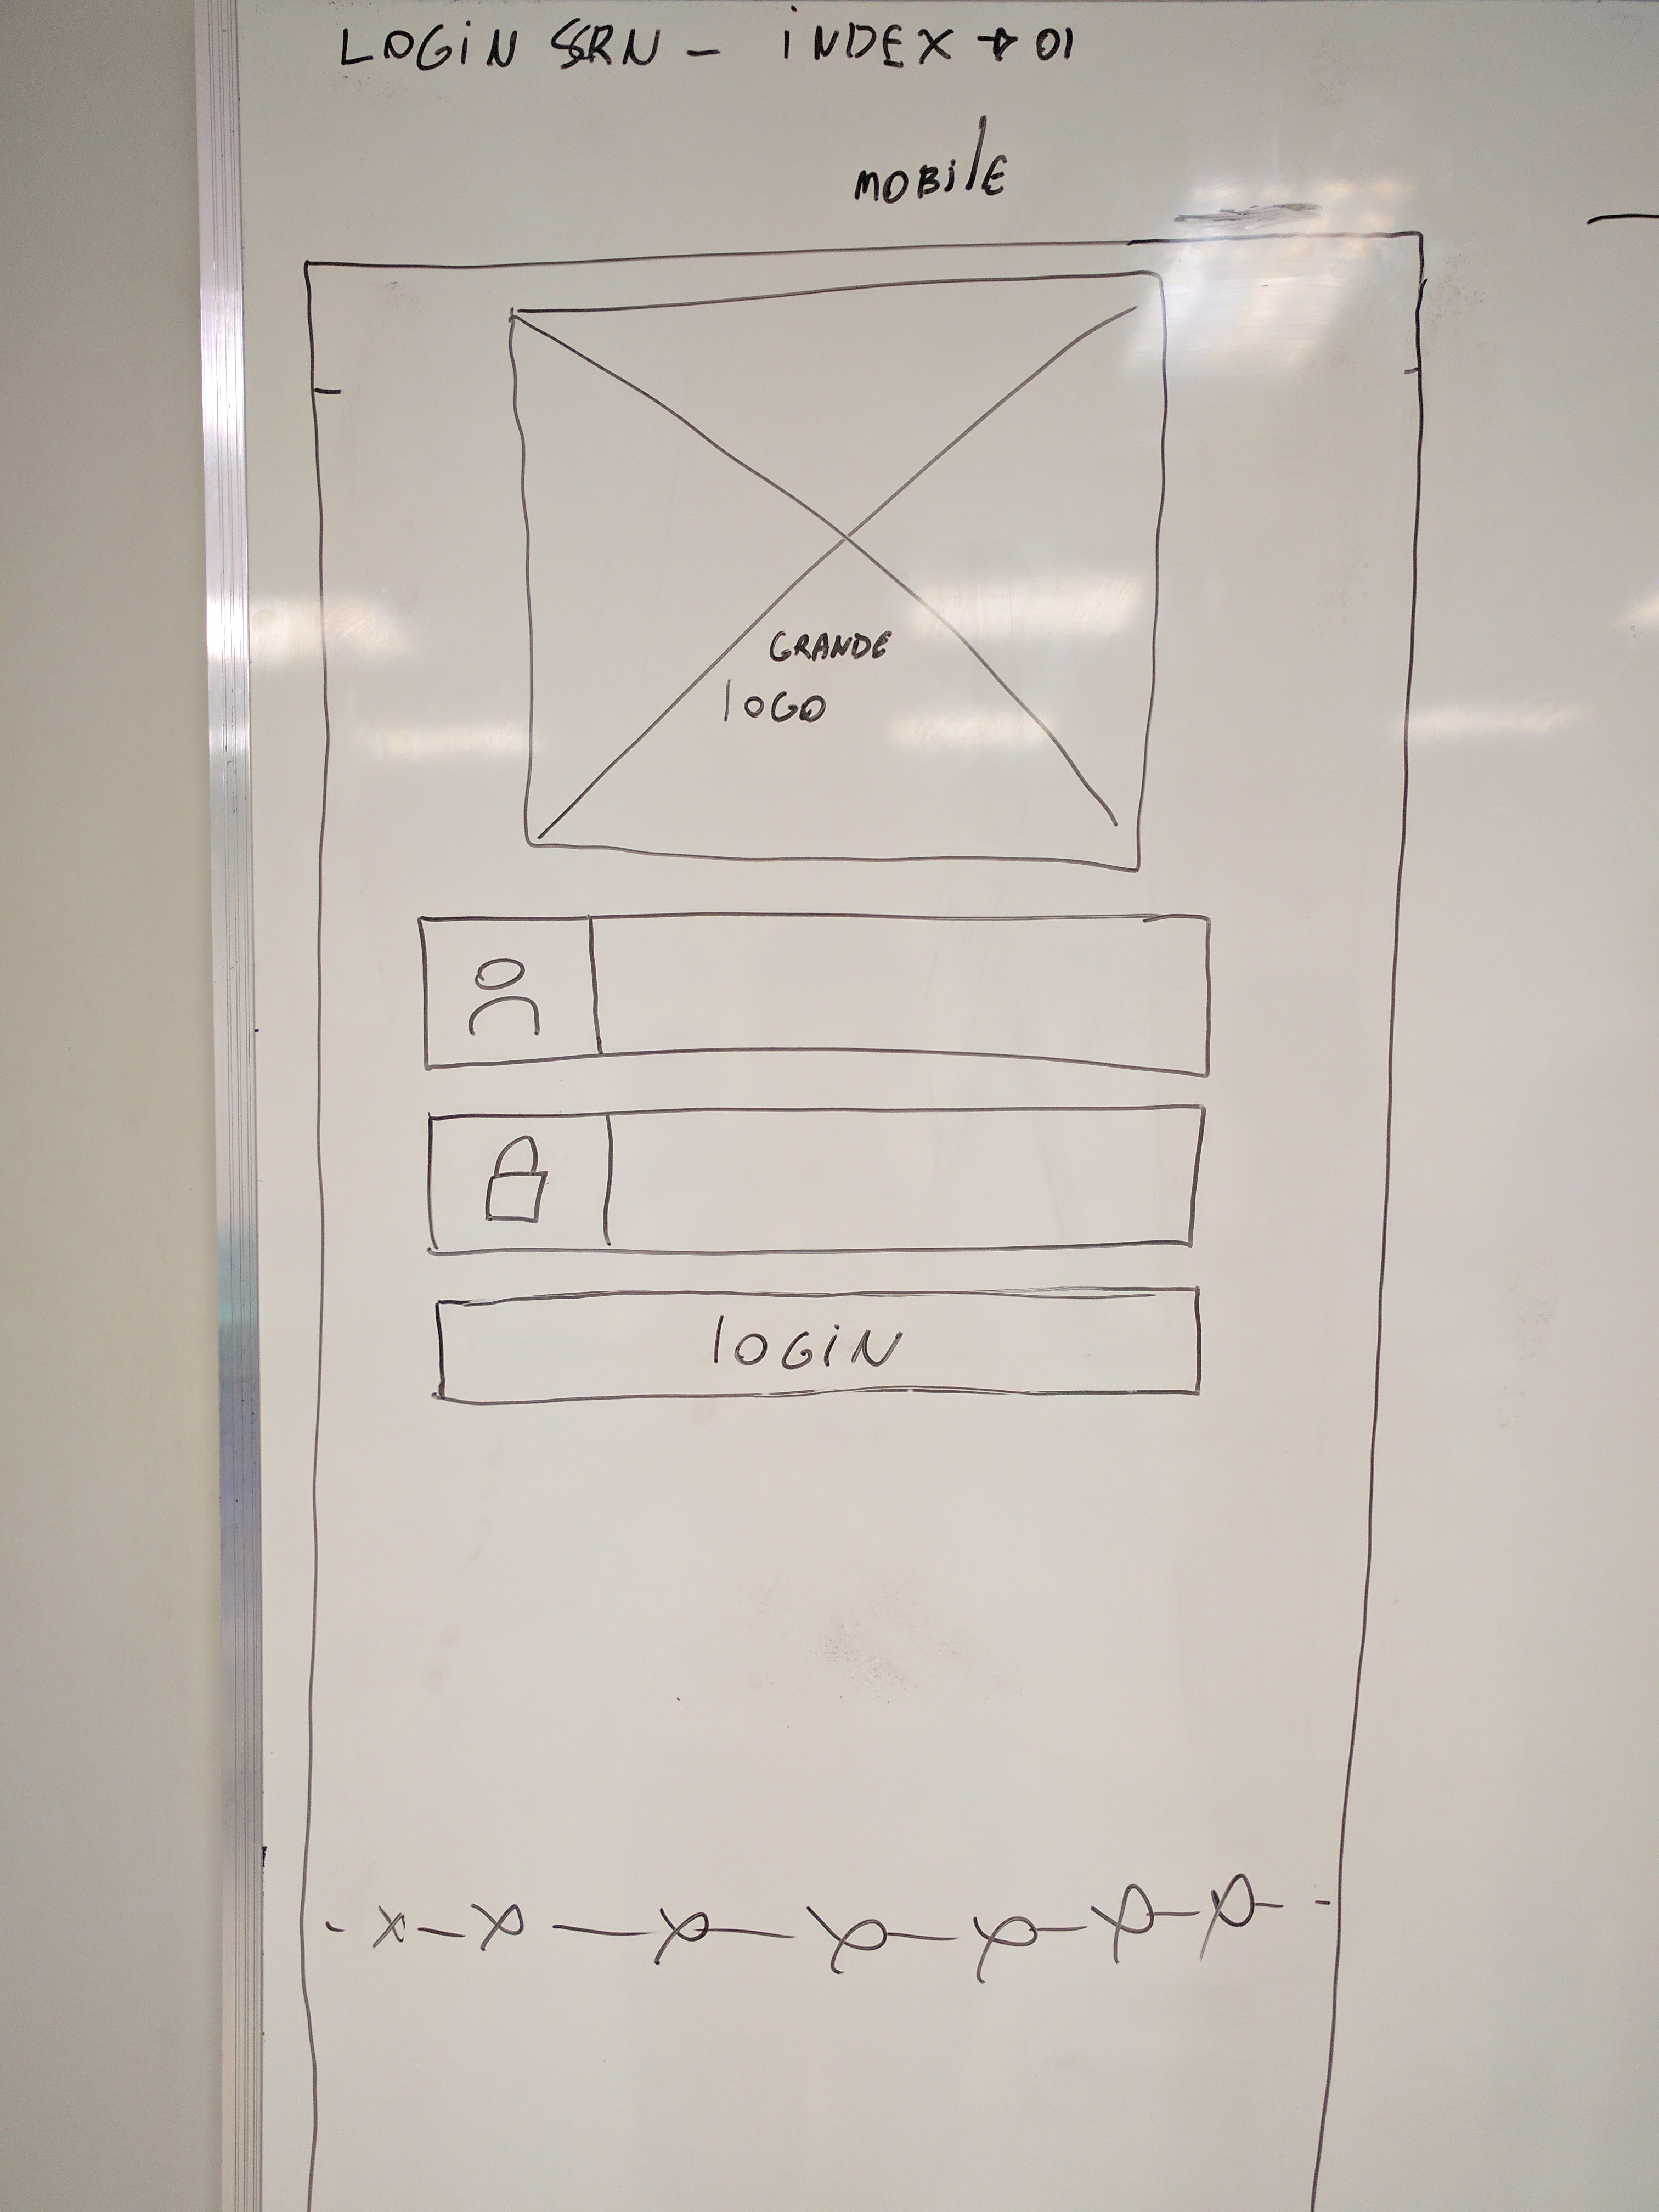 LOGIN SCRN - INDEX → 01
MOBILE
GRANDE
LOGO
LOGIN